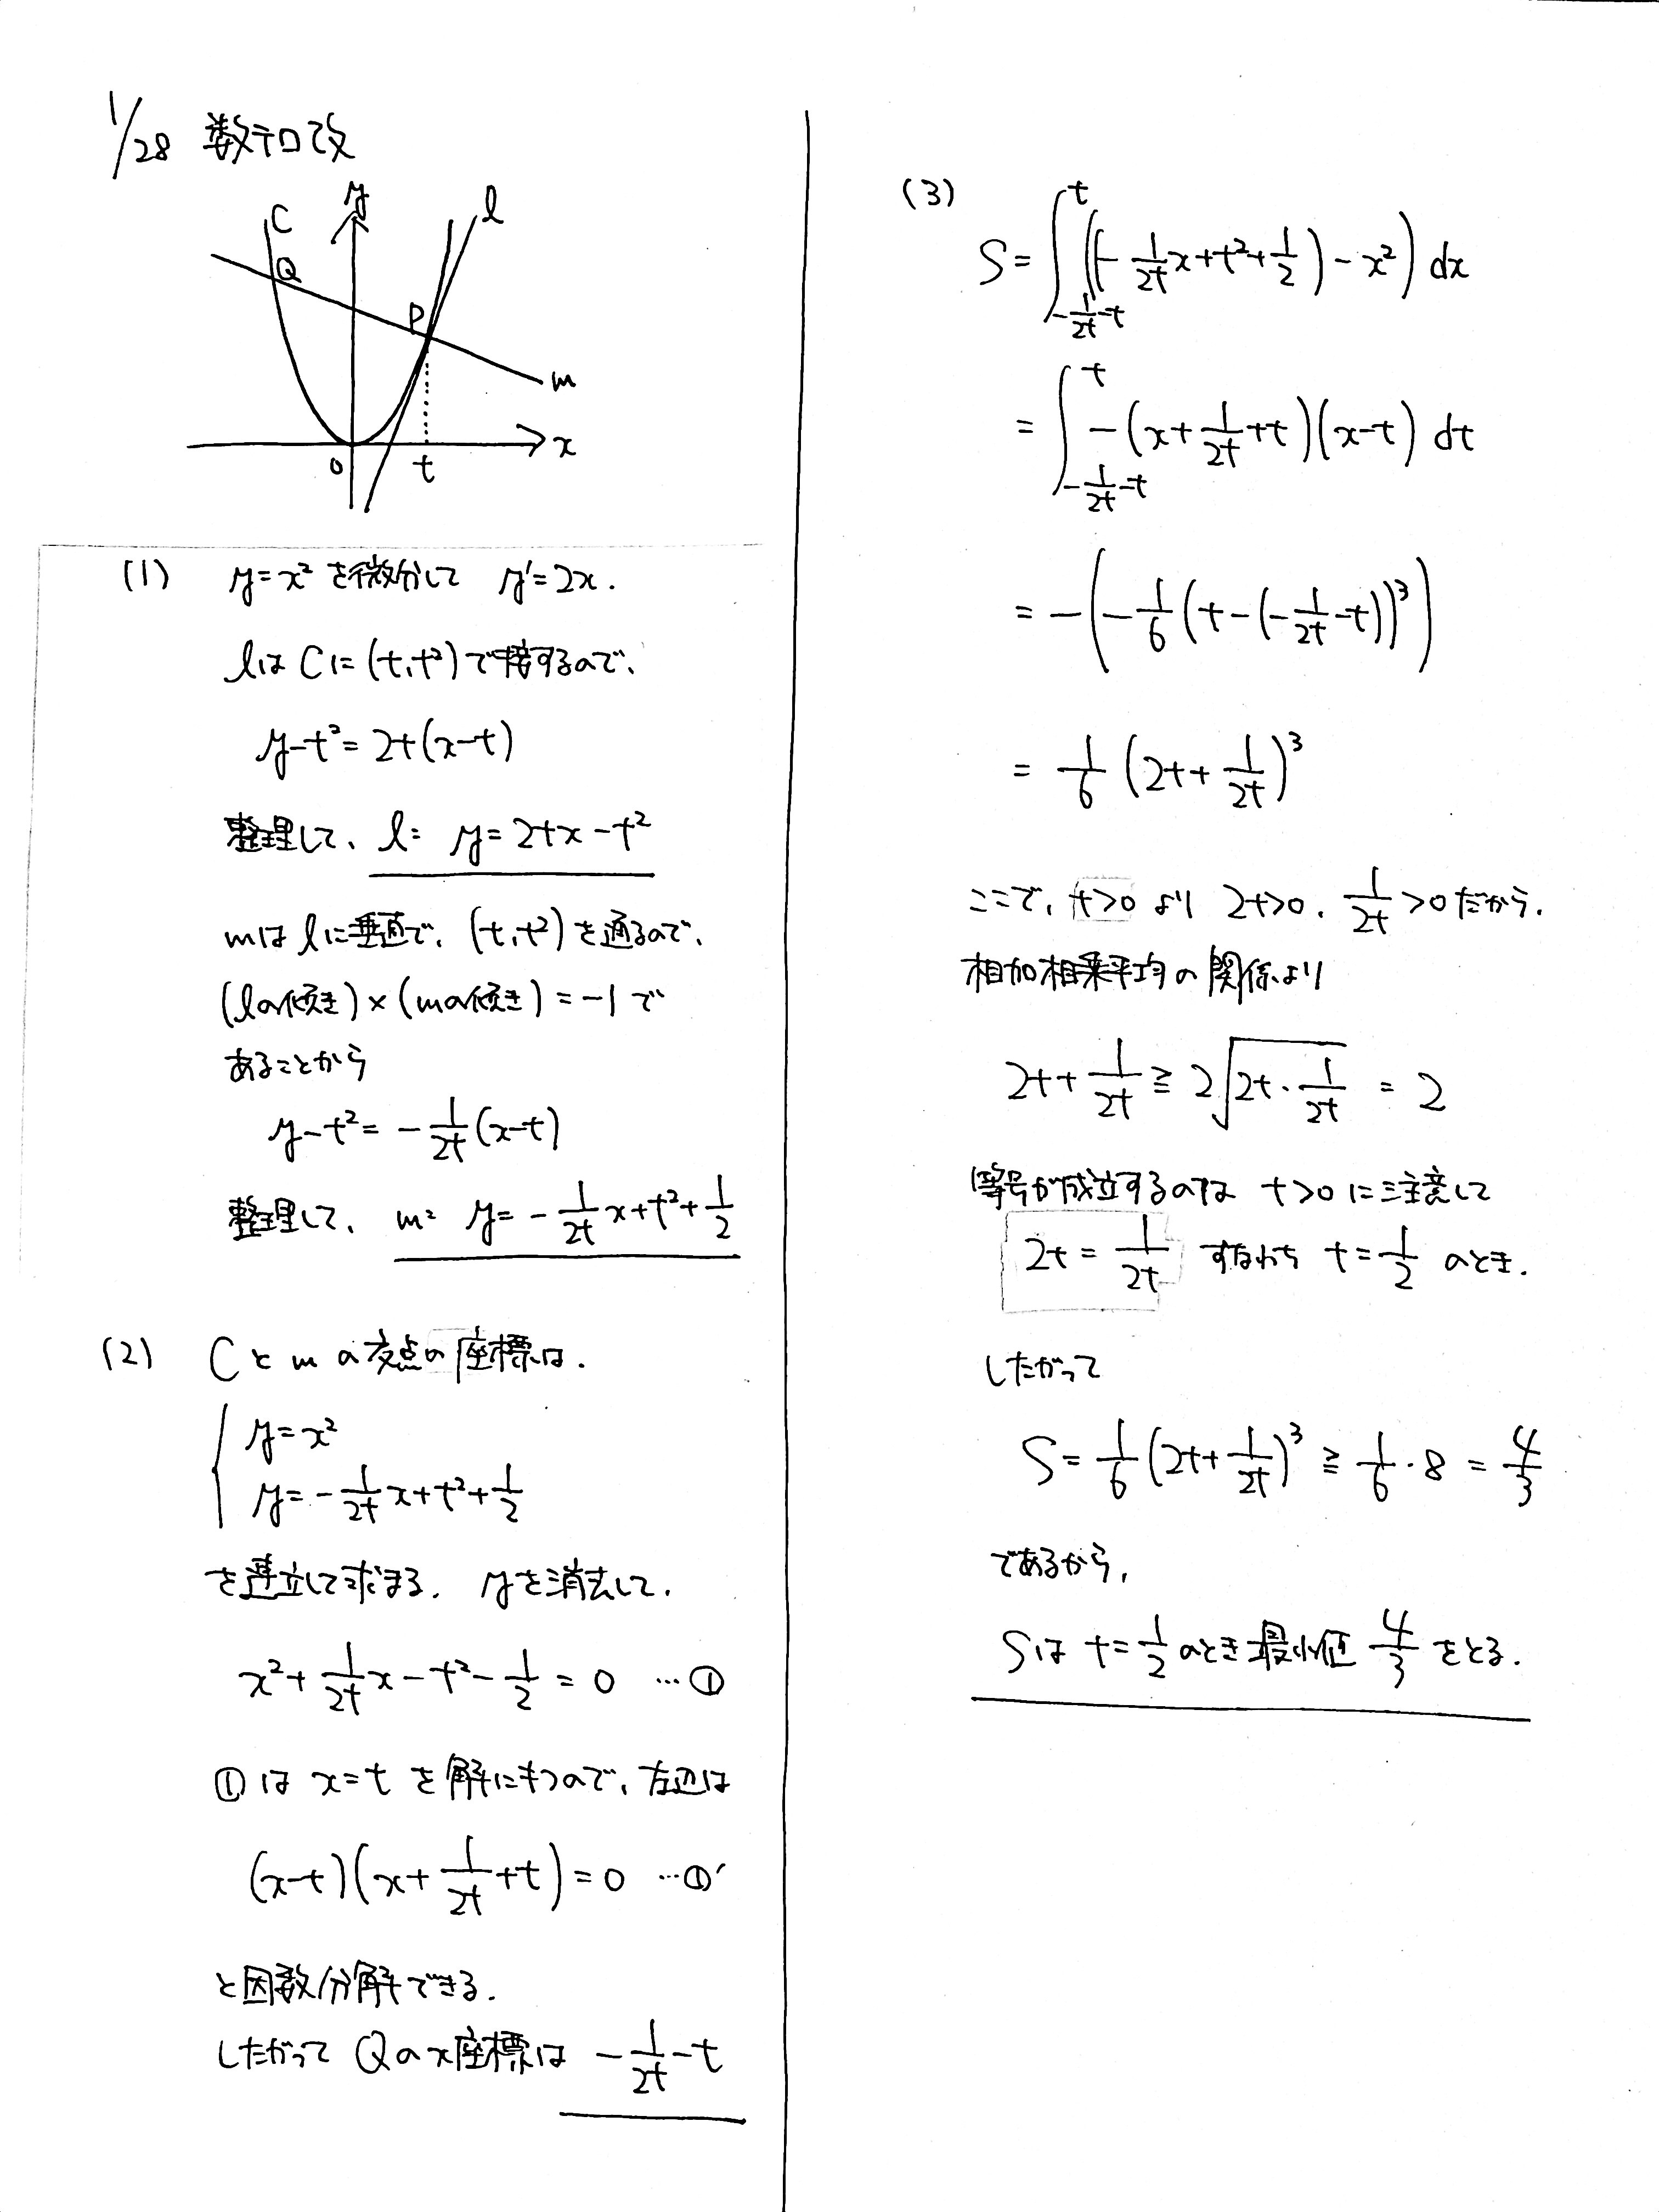 1/28 数テロ改
C
y
l
Q
P
m
x
O
t
(1) y=x² を微分して y'=2x.
lはCに(t,t²)で接するので、
y-t²=2t(x-t)
整理して、l: y=2tx-t²
mはlに垂直で、(t,t²)を通るので、
(lの傾き)×(mの傾き)=-1で
あることから
y-t²=-1/2t(x-t)
整理して、m: y=-1/2t x+t²+1/2
(2) Cとmの交点の座標は、
{ y=x²
y=-1/2t x+t²+1/2
を連立して求まる. yを消去して、
x²+1/2t x-t²-1/2=0 …①
①は x=t を解にもつので、左辺は
(x-t)(x+1/2t+t)=0 …①'
と因数分解できる.
したがって Qのx座標は -1/2t-t
(3)
S=∫_{-1/2t-t}^{t}((-1/2t x+t²+1/2)-x²)dx
=∫_{-1/2t-t}^{t}-(x+1/2t+t)(x-t)dt
=-(-1/6(t-(-1/2t-t))³)
=1/6(2t+1/2t)³
ここで、t>0 より 2t>0, 1/2t>0だから、
相加相乗平均の関係より
2t+1/2t≧2√(2t・1/2t)=2
等号が成立するのは t>0に注意して
2t=1/2t すなわち t=1/2 のとき.
したがって
S=1/6(2t+1/2t)³≧1/6・8=4/3
であるから、
Sは t=1/2のとき最小値 4/3 をとる.